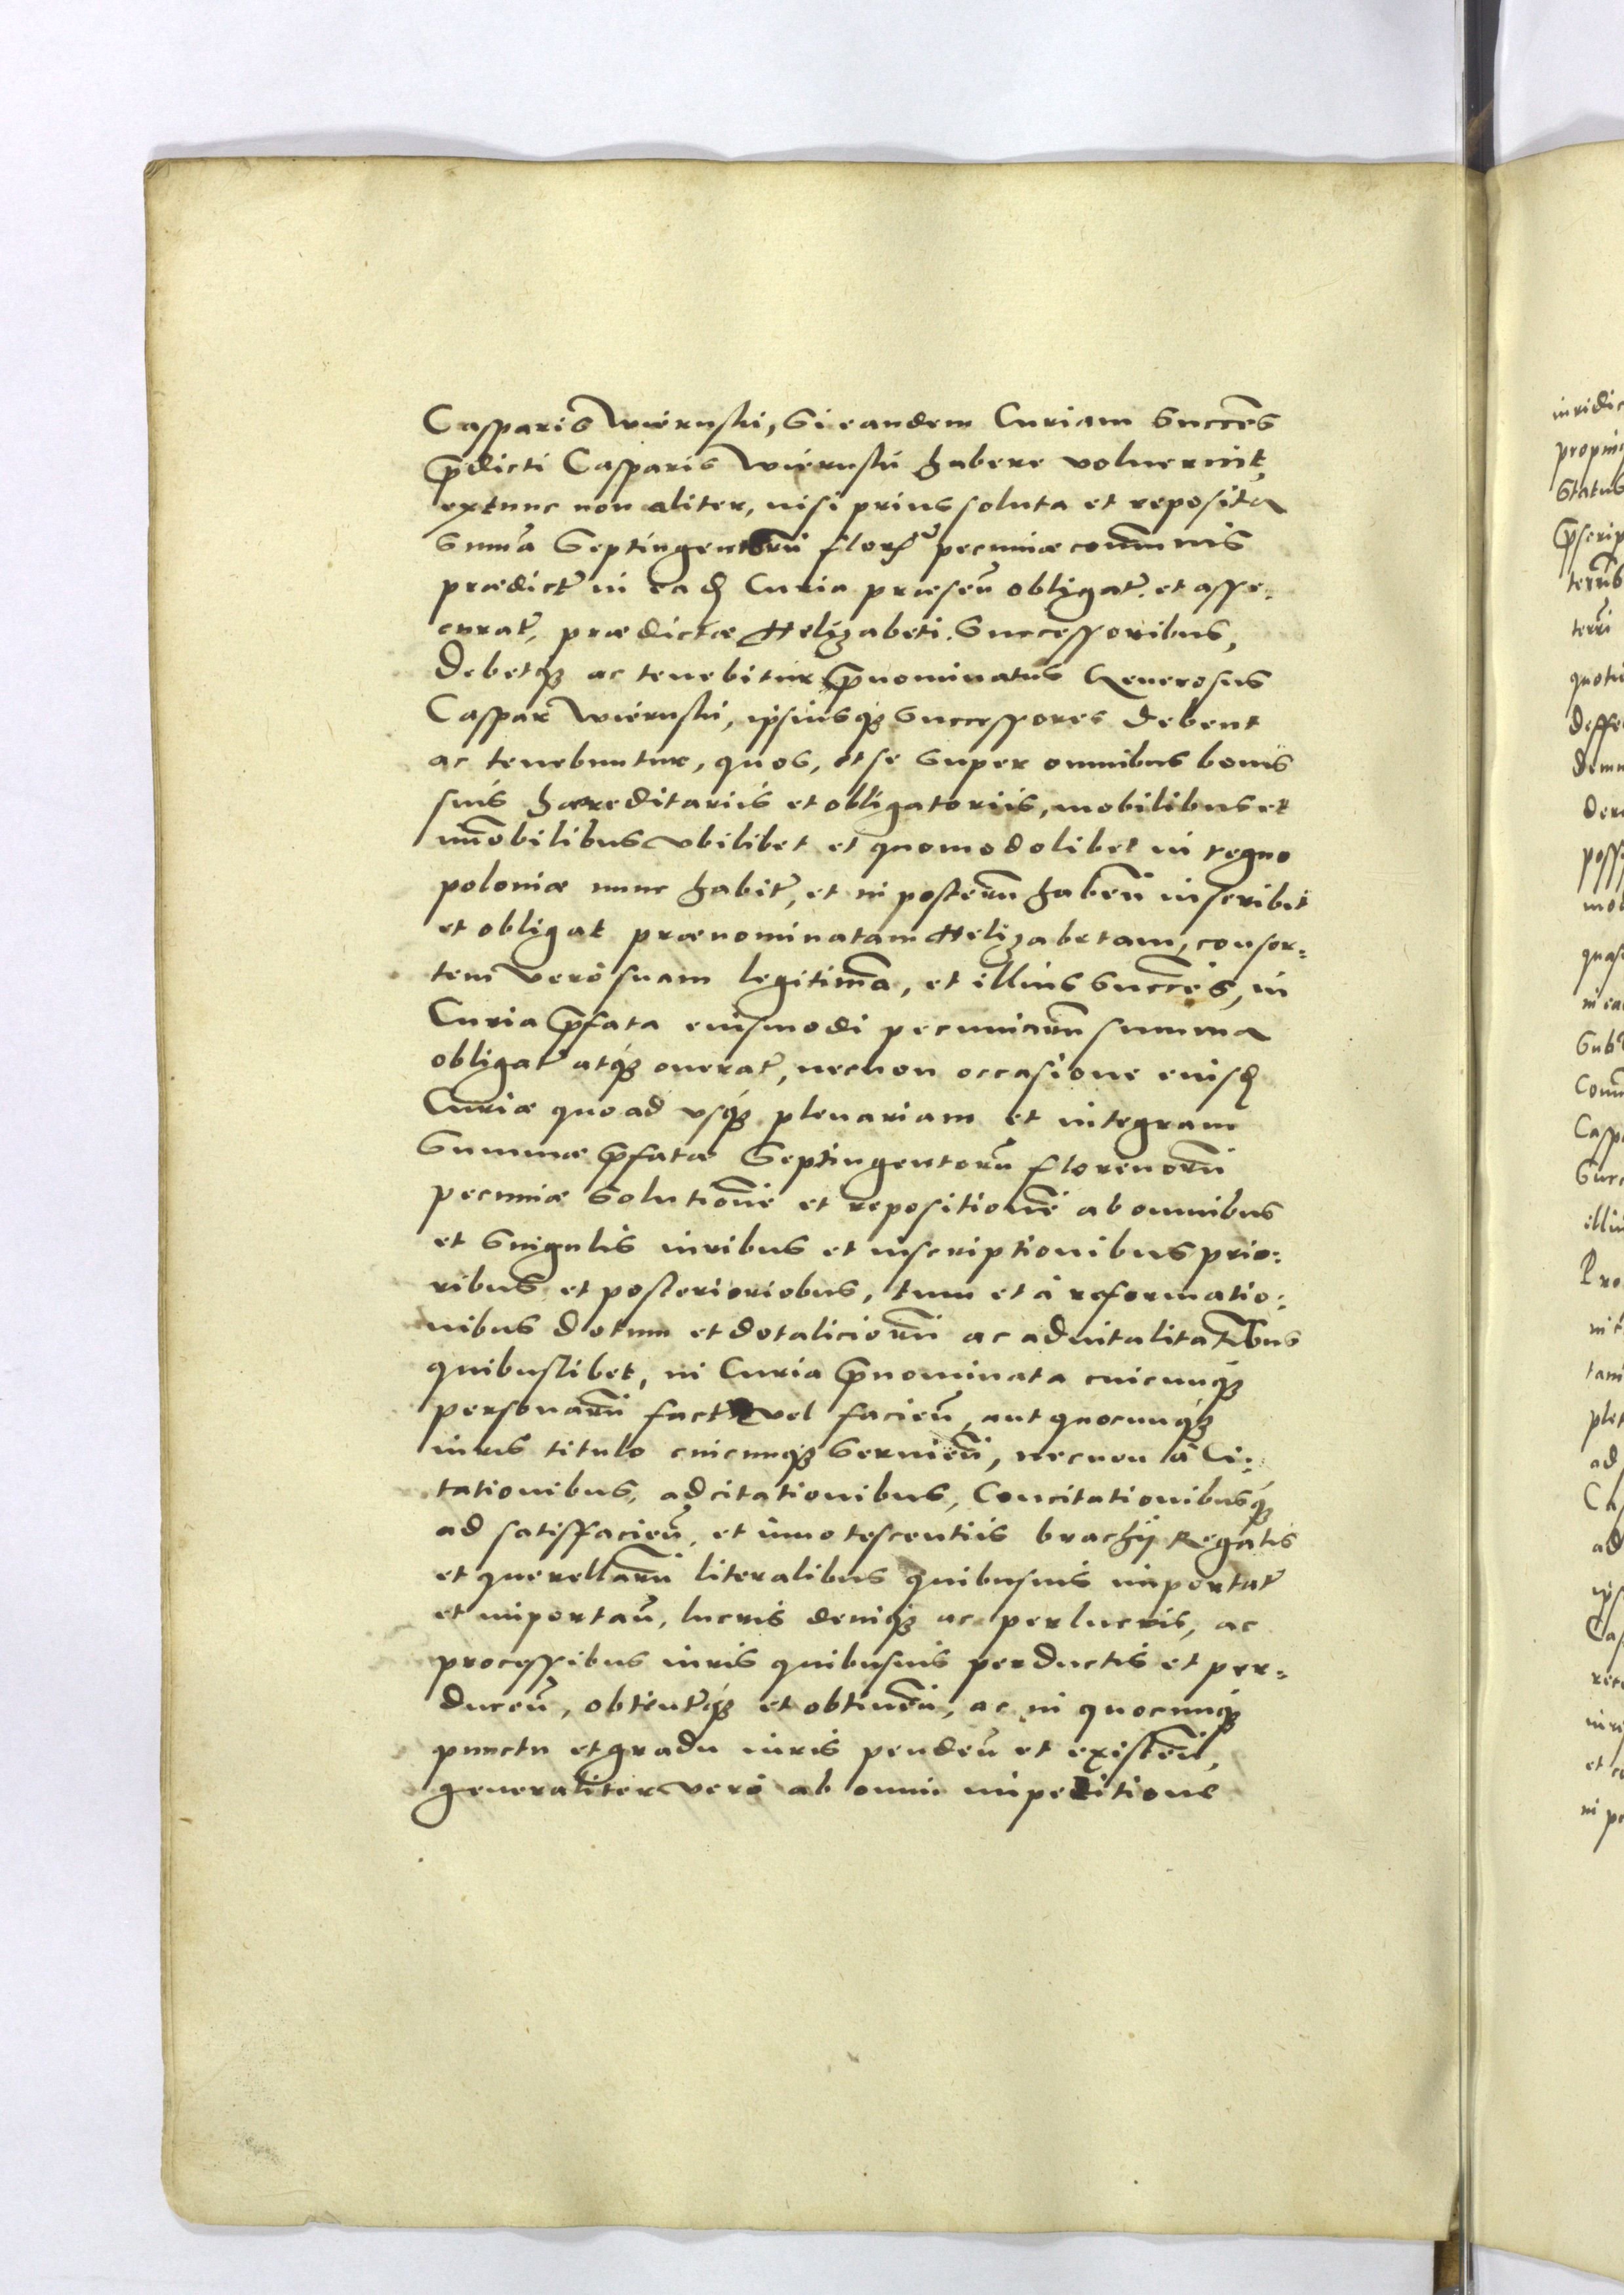 Casparis Wiernskii, Si eandem Curiam Succes̄s
p̄dicti Casparis Wiernskii habere voluerint,
extunc non aliter, nisi prius soluta et reposita
Sum̄a Septingentorū flor̄ pecuniæ com̄unis
prædict̄ in eadē Curia præsen̄ obligat̄. et asse:
curat̄, prædictæ Helizabeti. Successoribus,
Debetq3 ac tenebitur p̄nominatus Generosus
Caspar Wiernskii, ipsiusq3 Successores debent
ac tenebuntur, quos, et se super omnibus bonis
suis hæreditariis et obligatoriis, mobilibus et
im̄obilibus vbilibet et quomodolibet in regno
poloniæ nunc habit̄, et in posterū haben̄ inscribit
et obligat prænominatam Helizabetam, consor:
tem vero suam legitimā, et illius Succes̄, in
Curia p̄fata eiusmodi pecuniarū summa
obligat̄ atq3 onerat̄, necnon occasione eiusd̄
Curiæ quoad vsq3 plenariam et integram
Summæ p̄fatæ Septingentorū florenorū
pecuniæ Solutionē et repositionē ab omnibus
et Singulis iuribus et inscriptionibus prio:
ribus et posterioriobus, tum et à reformatio:
nibus dotum et dotaliciorū ac aduitalitatibus
quibuslibet, in Curia p̄nominata cuicunq3
personarū fact̄ vel facien̄, aut quocunq3
iuris titulo cuicunq3 Seruien̄, necnon à Ci:
tationibus, adcitationibus, Concitationibusq3
ad satisfacien̄, et innotescentiis brachij Regalis
et querellarū literalibus quibusuis importat̄
et importan̄, lucris deniq3 ac perlucris, ac
processibus iuris quibusuis perductis et per:
ducen̄, obtentq3 et obtinen̄, ac in quocunq3
punctu et gradu iuris penden̄ et existen̄,
generaliter vero ab omni impeditione